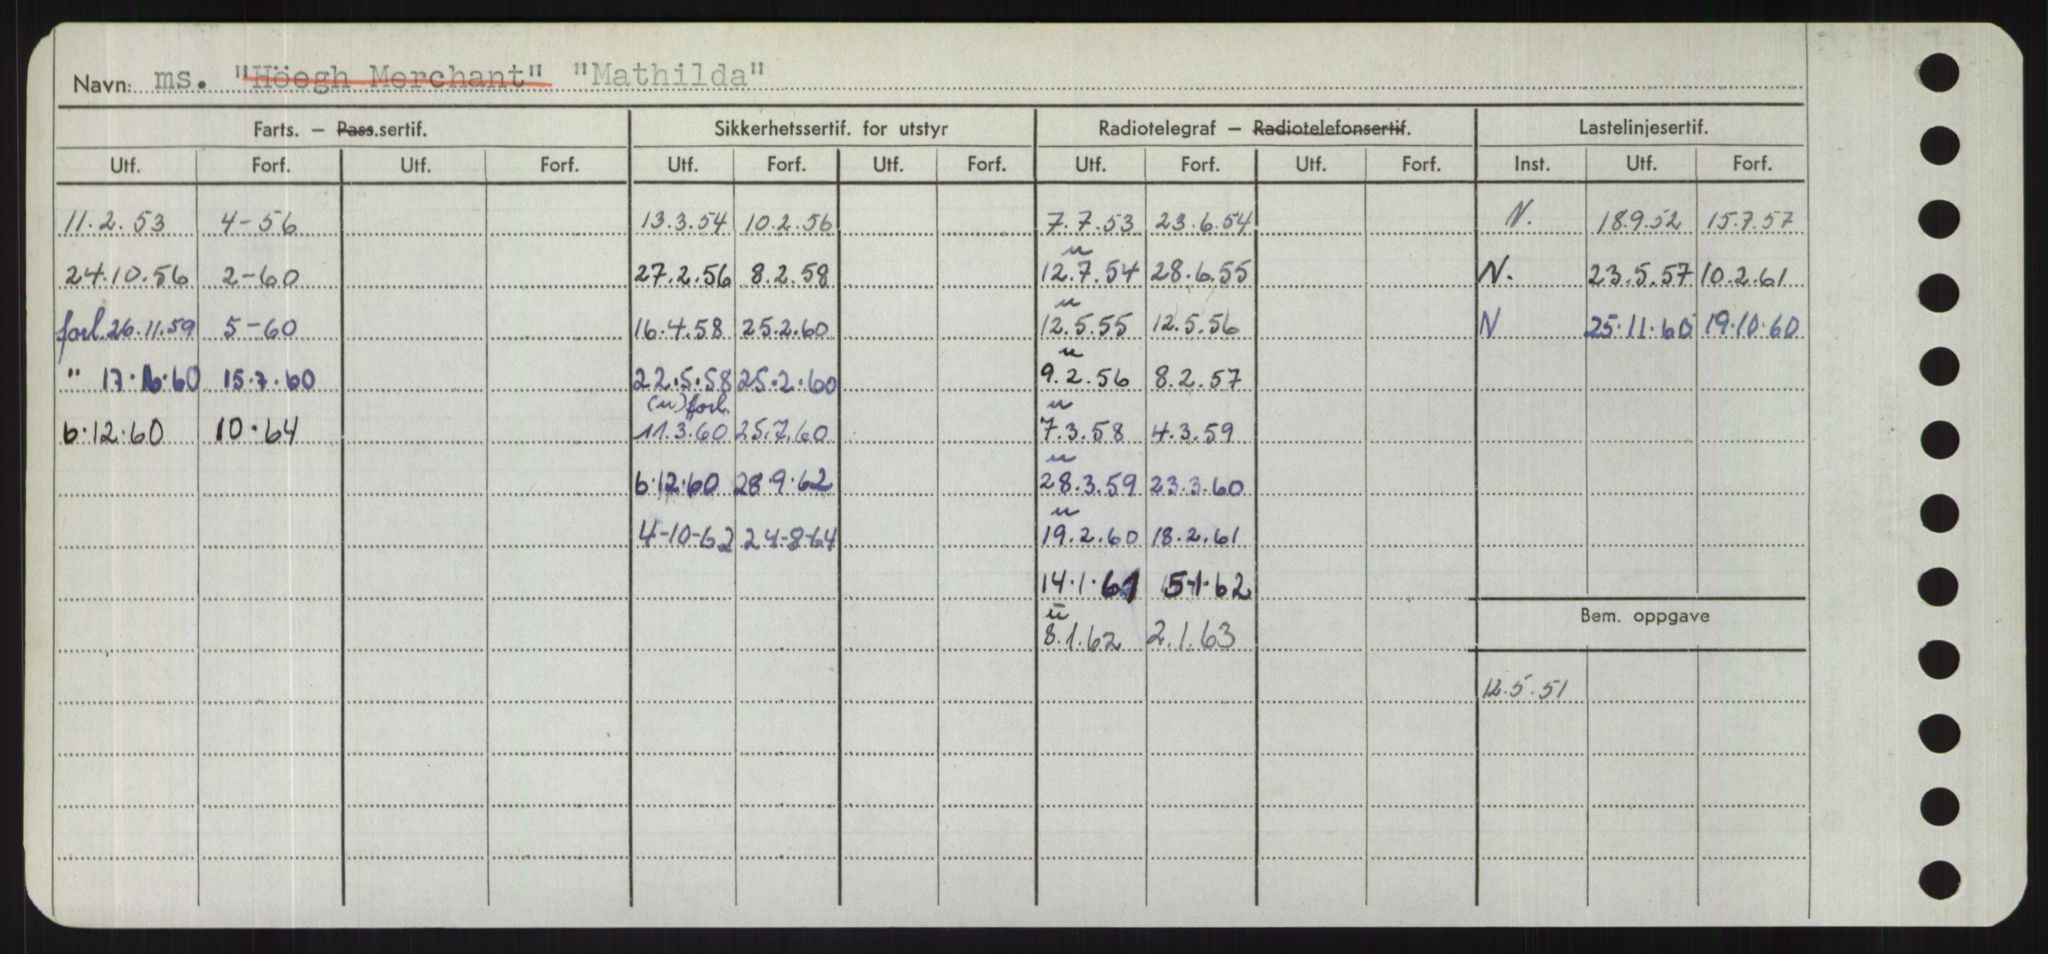 Navn: ms. "Höegh Merchant" "Mathilda"
Farts. – Pass.sertif. Sikkerhetssertif. for utstyr Radiotelegraf – Radiotelefonsertif. Lastelinjesertif.
Utf. Forf. Utf. Forf. Utf. Forf. Utf. Forf. Utf. Forf. Utf. Forf. Inst. Utf. Forf.
11.2.53 4-56 13.3.54 10.2.56 7.7.53 23.6.54 N. 18.9.52 15.7.57
u
24.10.56 2-60 27.2.56 8.2.58 12.7.54 28.6.55 N. 23.5.57 10.2.61
u
forl. 26.11.59 5-60 16.4.58 25.2.60 12.5.55 12.5.56 N 25.11.60 19.10.60
u
" 17.6.60 15.7.60 22.5.58 25.2.60 9.2.56 8.2.57
(u) forl. u
6.12.60 10.64 11.3.60 25.7.60 7.3.58 4.3.59
u
6.12.60 28.9.62 28.3.59 23.3.60
u
4-10-62 24-8-64 19.2.60 18.2.61
14.1.61 15.1.62
u Bem. oppgave
8.1.62 2.1.63
12.5.51